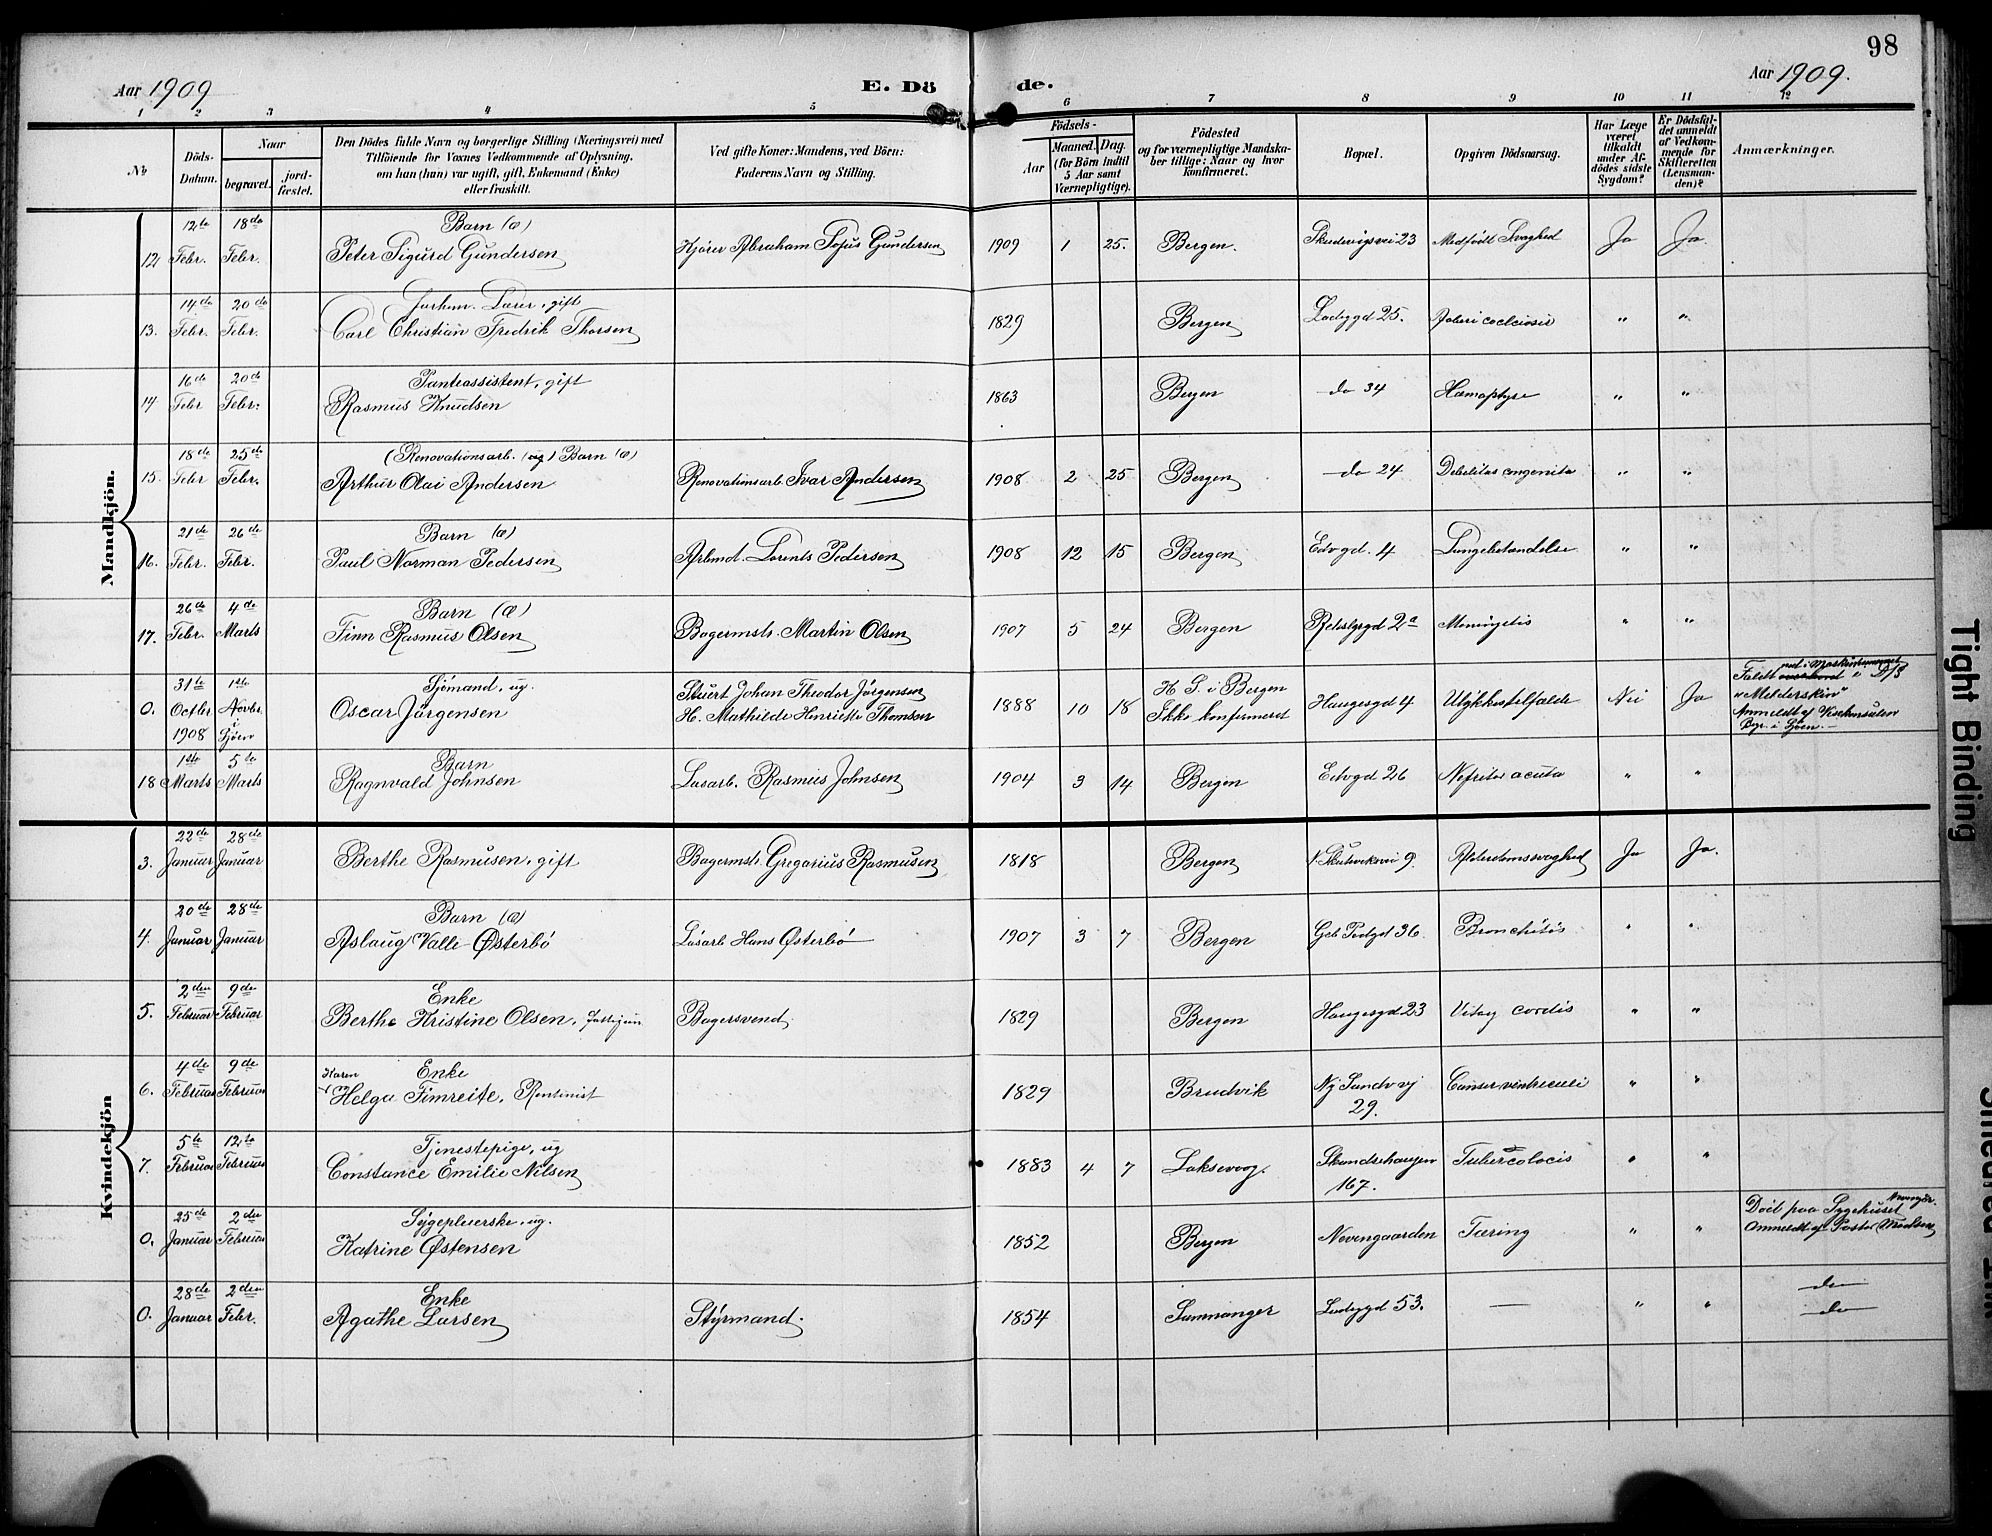 98
Aar 1909
E. Dö
de.
Aar 1909.
1 2 3 4 5 6 7 8 9 10 11 12
No
Döds-
Datum.
Naar
begravet.
jord-
fæstet.
Den Dödes fulde Navn og borgerlige Stilling (Næringsvei) med
Tilföiende for Voxnes Vedkommende af Oplysning,
om han (hun) var ugift, gift, Enkemand (Enke)
eller fraskilt.
Ved gifte Koner: Mandens, ved Börn:
Faderens Navn og Stilling.
Födsels-
Aar
Maaned. Dag.
(for Börn indtil
5 Aar samt
Værnepligtige).
Födested
og for værnepligtige Mandska-
ber tillige: Naar og hvor
konfirmeret.
Bopæl.
Opgiven Dödsaarsag.
Har Læge
været
tilkaldt
under Af-
dödes sidste
Sygdom?
Er Dödsfal-
det anmeldt
af Vedkom-
mende for
Skifteretten
(Lensman-
den)?
Anmærkninger.
Mandkjön.
12te 18de Barn (æ)
12 Febr. Febr. Peter Sigurd Gundersen Kjörer Abraham Gundersen 1909 1 25. Bergen. 23 Medfödt Svaghed Ja Ja
14de 20de gift
13. Febr. Febr. Carl Christian Fredrik Thorsen 1829 Bergen 25. " "
16de 20de Panteassistent, gift
14 Febr Febr. Rasmus Knudsen 1863 Bergen do 34 Hæmoptyse " "
18de 25de (Renovationsarb. (ug) Barn (æ)
15. Febr Febr. Arthur Olai Andersen Renovationsarb Ivar Andersen 1908 2 25 Bergen do 24 Debilitas congenita " "
21de 26de Barn (æ)
16. Febr. Febr. Paul Norman Pedersen Arbmd. Lorents Pedersen 1908 12 15 Bergen Edvgd. 4 Lungebetændelse " "
26de 4de Barn (æ)
17. Febr. Marts Finn Rasmus Olsen Bagermstr. Martin Olsen 1907 5 24 Bergen 2a Meningitis " "
31te 1ste Sjömand, ug. Stuert Johan Theodor Jörgensen H. S. i Bergen
0. Octbr Novbr. Oscar Jörgensen H. Mathilde Henriette Thomsen 1888 10 18 Ikke konfirmeret Haugesgd 4 Ulykkestilfælde Nei Ja
1908 Sjöen
ned i Maskinrummet
Faldt overbord D/S
"Melderskin"
Anmeldt af Visekonsulen
Begr. i Sjöen.
1ste 5te Barn
18 Marts Marts Ragnvald Johnsen Lösarb. Rasmus Johnsen 1904 3 14 Bergen Edvgd 26 Nefritis acuta " "
Kvindekjön
22de 28de
3. Januar Januar Berthe Rasmusen, gift Bagermstr. Gregorius Rasmusen 1818 Bergen 9. Alderdomssvaghed Ja Ja.
20de 28de Barn (æ)
4. Januar Januar Aslaug Valle Østerbö Lösarb Hans Østerbö 1907 3 7 Bergen 36 Bronchitis " "
2den 9de Enke
5. Februar Februar Berthe Kristine Olsen, Bagersvend 1829 Bergen Haugesgd 23 Vitium cordis " "
4de 9de Karen Enke
6. Februar Februar Helga Timreite, Rentenist 1829 Bruvik Ny Sandvvj 29. Canser ventriculi " "
5te 12te Tjenestepige, ug
7. Februar Februar Constance Emilie Nilsen 1883 4 7 Laksevaag. 167. Tuberculocis " "
25de 2den Sygepleierske, ug.
0. Januar Februar Katrine Østensen 1852 Bergen Nevengaarden Tæring " "
Död paa Sygehuset
Anmeldt af Pastor
28de 2den Enke
0. Januar Febr. Agathe Larsen Styrmand. 1854 Samnanger Ladegd 53. — " "
do
do
Tight Binding
Smeared Ink